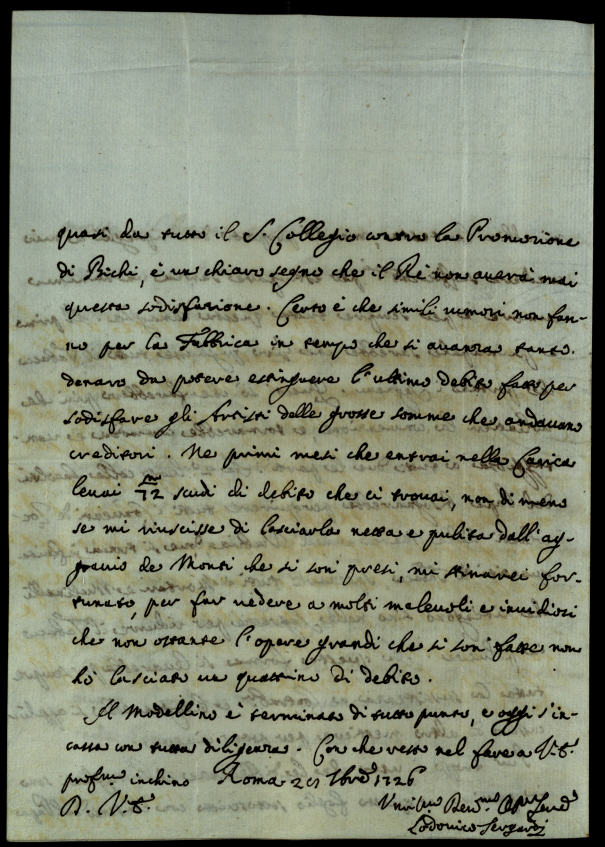 quasi da tutto il S. Collegio contro la Promozione
di Bichi, è un chiaro segno che il Rè non auerà mai
questa sodisfazione. Certo è che simili rumori non fan-
no per la Fabbrica in tempo che si auanza tanto
denaro da potere estinguere l'ultimo debito fatto per
sodisfare gli Artisti delle grosse somme che andauano
creditori. Ne primi mesi che entrai nella Carica
leuai 72 scudi di debito che ci trouai, non di meno
se mi riuscisse di lasciarla netta e pulita dall'ag-
grauio de Monti che si son presi, mi stimarei for-
tunato, per far uedere a molti maleuoli e inuidiosi
che non ostante l'opere grandi che si son fatte non
hò lasciato un quattrino di debito.
Il Modellino è terminato di tutto punto, e oggi s'in-
cassa con tutta diligenza. Con che resto nel fare a V.S.
prof.mo inchino Roma 7bre 1726
D. V.S.
Lodouico Sergardi